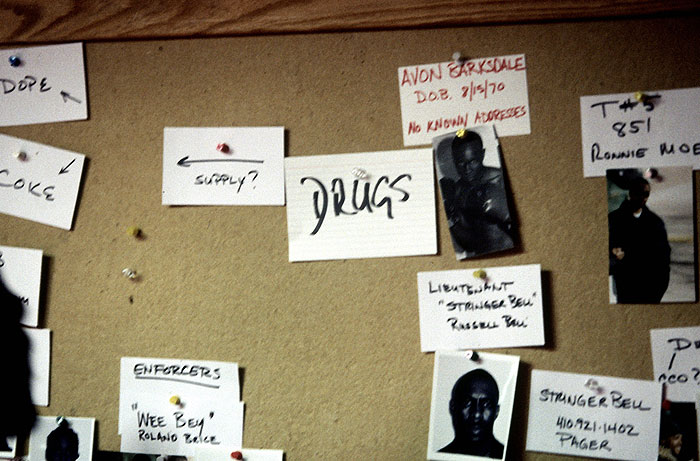 DOPE
COKE
SUPPLY?
DRUGS
AVON BARKSDALE
D.O.B. 8/15/70
NO KNOWN ADDRESSES
T#5
851
RONNIE MOE
LIEUTENANT
"STRINGER BELL"
RUSSELL BELL
ENFORCERS
"WEE BEY"
ROLAND BRICE
STRINGER BELL
410.921-1402
PAGER